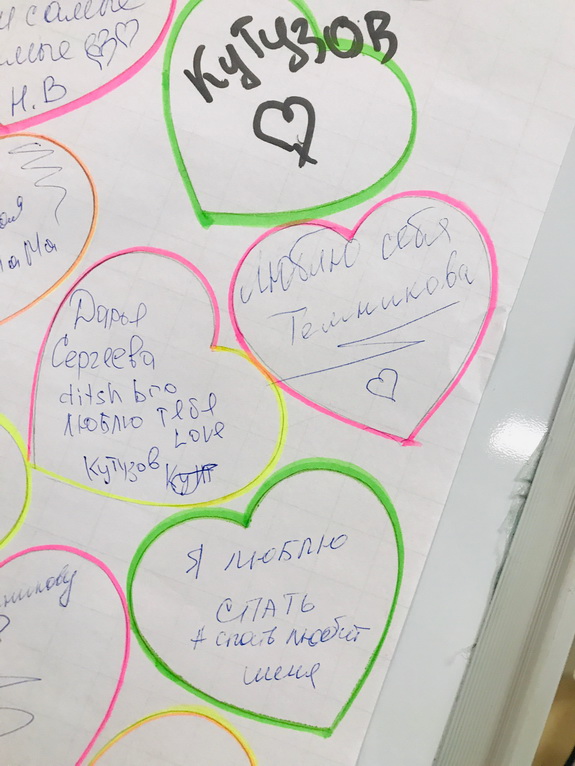 и самые
милые
Н.В
КУТУЗОВ
мама
Люблю себя
Темникова
Дарья
Сергеева
ditsh bro
люблю тебя
Love
Кутузов
Я люблю
СПАТЬ
А спать любит
меня